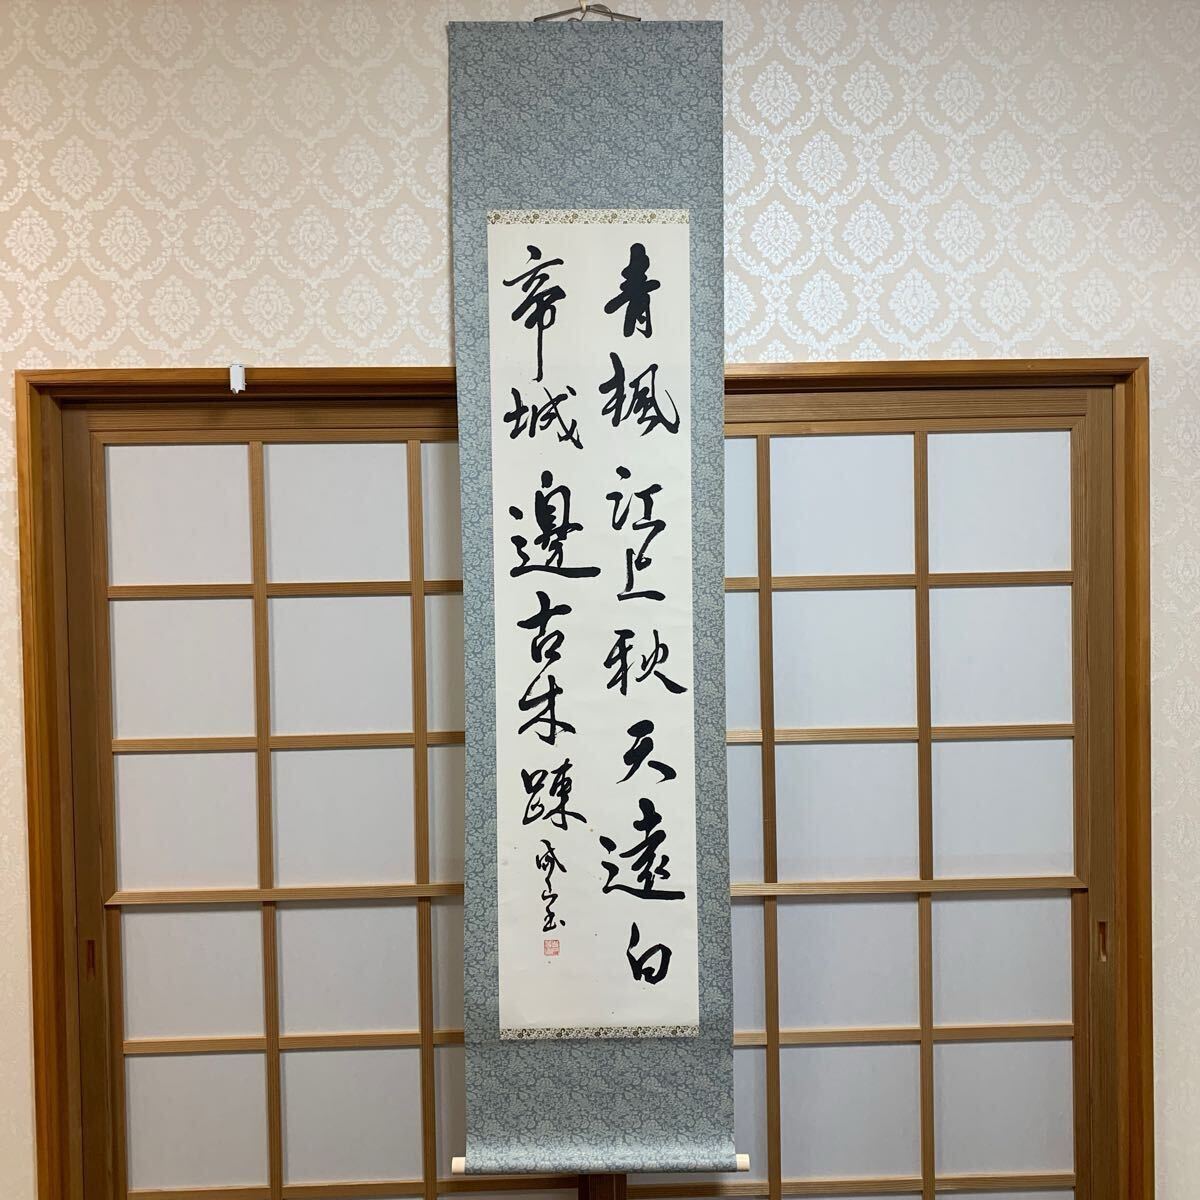 青楓江上秋天遠白
帝城邊古木踈